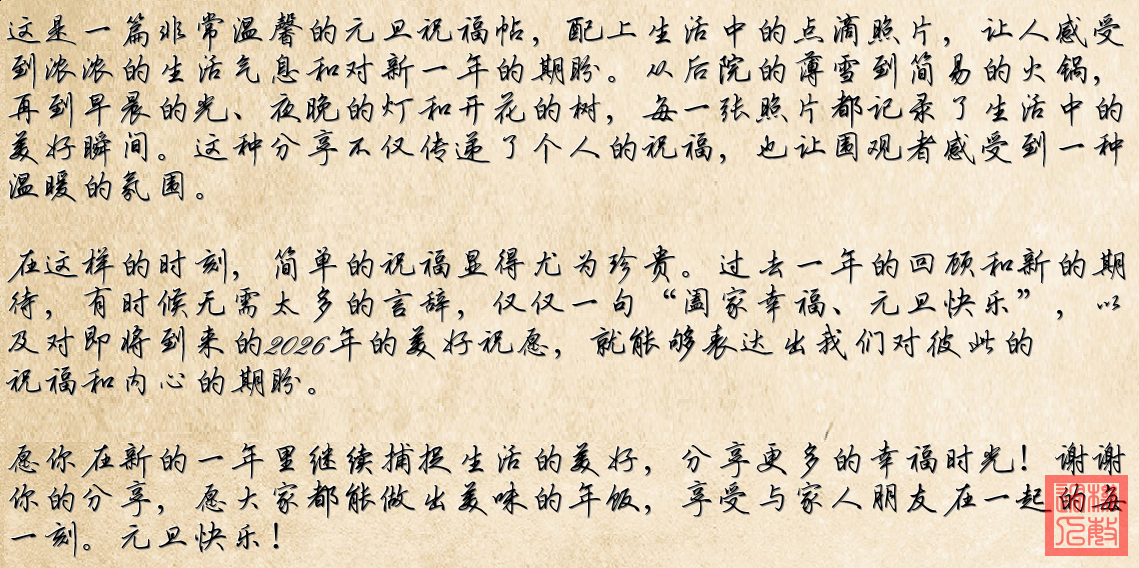 这是一篇非常温馨的元旦祝福帖，配上生活中的点滴照片，让人感受
到浓浓的生活气息和对新一年的期盼。从后院的薄雪到简易的火锅，
再到早晨的光、夜晚的灯和开花的树，每一张照片都记录了生活中的
美好瞬间。这种分享不仅传递了个人的祝福，也让围观者感受到一种
温暖的氛围。
在这样的时刻，简单的祝福显得尤为珍贵。过去一年的回顾和新的期
待，有时候无需太多的言辞，仅仅一句“阖家幸福、元旦快乐”，以
及对即将到来的2026年的美好祝愿，就能够表达出我们对彼此的
祝福和内心的期盼。
愿你在新的一年里继续捕捉生活的美好，分享更多的幸福时光！谢谢
你的分享，愿大家都能做出美味的年饭，享受与家人朋友在一起的每
一刻。元旦快乐！